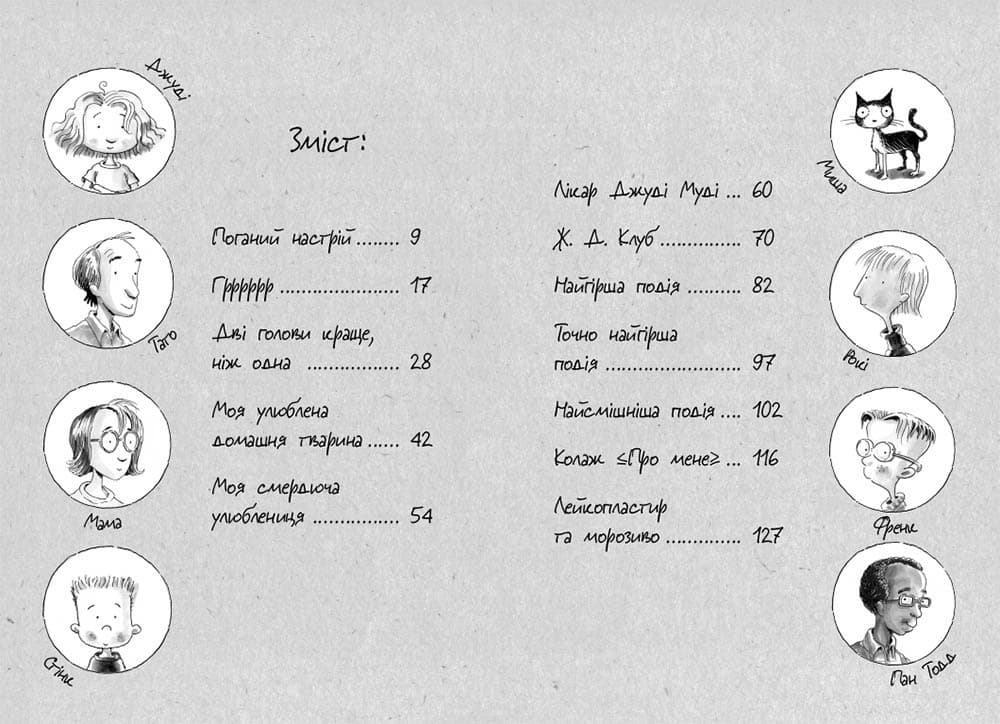 Джуді
Тато
Мама
Стінк
Зміст:
Поганий настрій........ 9
Гррррррр ...................... 17
Дві голови краще,
ніж одна .................. 28
Моя улюблена
домашня тварина ...... 42
Моя смердюча
улюблениця ................. 54
Лікар Джуді Муді ... 60
Ж. Д. Клуб............... 70
Найгірша подія .......... 82
Точно найгірша
подія ......................... 97
Найсмішніша подія .... 102
Колаж ≤Про мене≥ ... 116
Лейкопластир
та морозиво .............. 127
Миша
Рокі
Френк
Пан Тодд